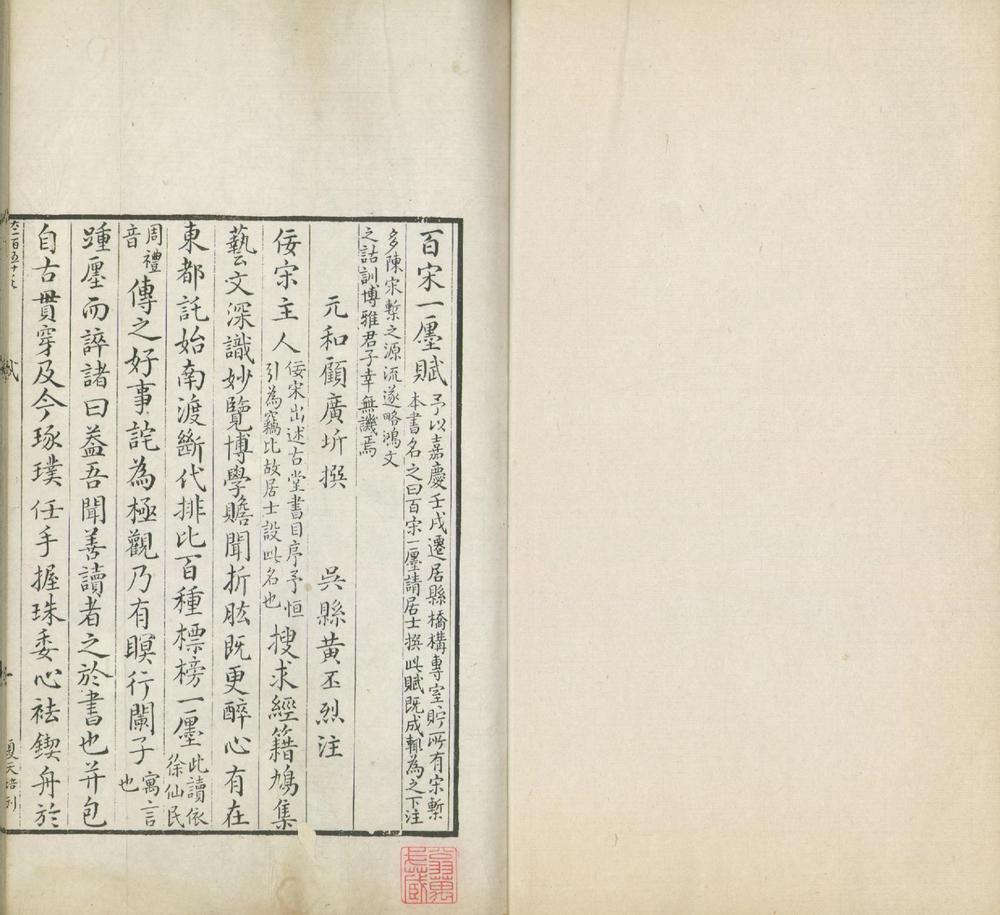 百宋一廛賦予以嘉慶壬戌遷居縣橋構專室貯所有宋槧
本書名之曰百宋一廛請居士撰此賦既成輒為之下注
多陳宋槧之源流遂略鴻文
之詁訓博雅君子幸無譏焉
元和顧廣圻撰　吳縣黃丕烈注
佞宋主人佞宋出述古堂書目序予恒
引為竊比故居士設此名也搜求經籍鳩集
藝文深識妙覽博學贍聞折肱既更醉心有在
東都託始南渡斷代排比百種標榜一廛此讀依
徐仙民
周禮
音傳之好事詫為極觀乃有瞑行闡子寓言
也
踵廛而誶諸曰蓋吾聞善讀者之於書也并包
自古貫穿及今琢璞任手握珠委心袪鍥舟於
夏天培刊